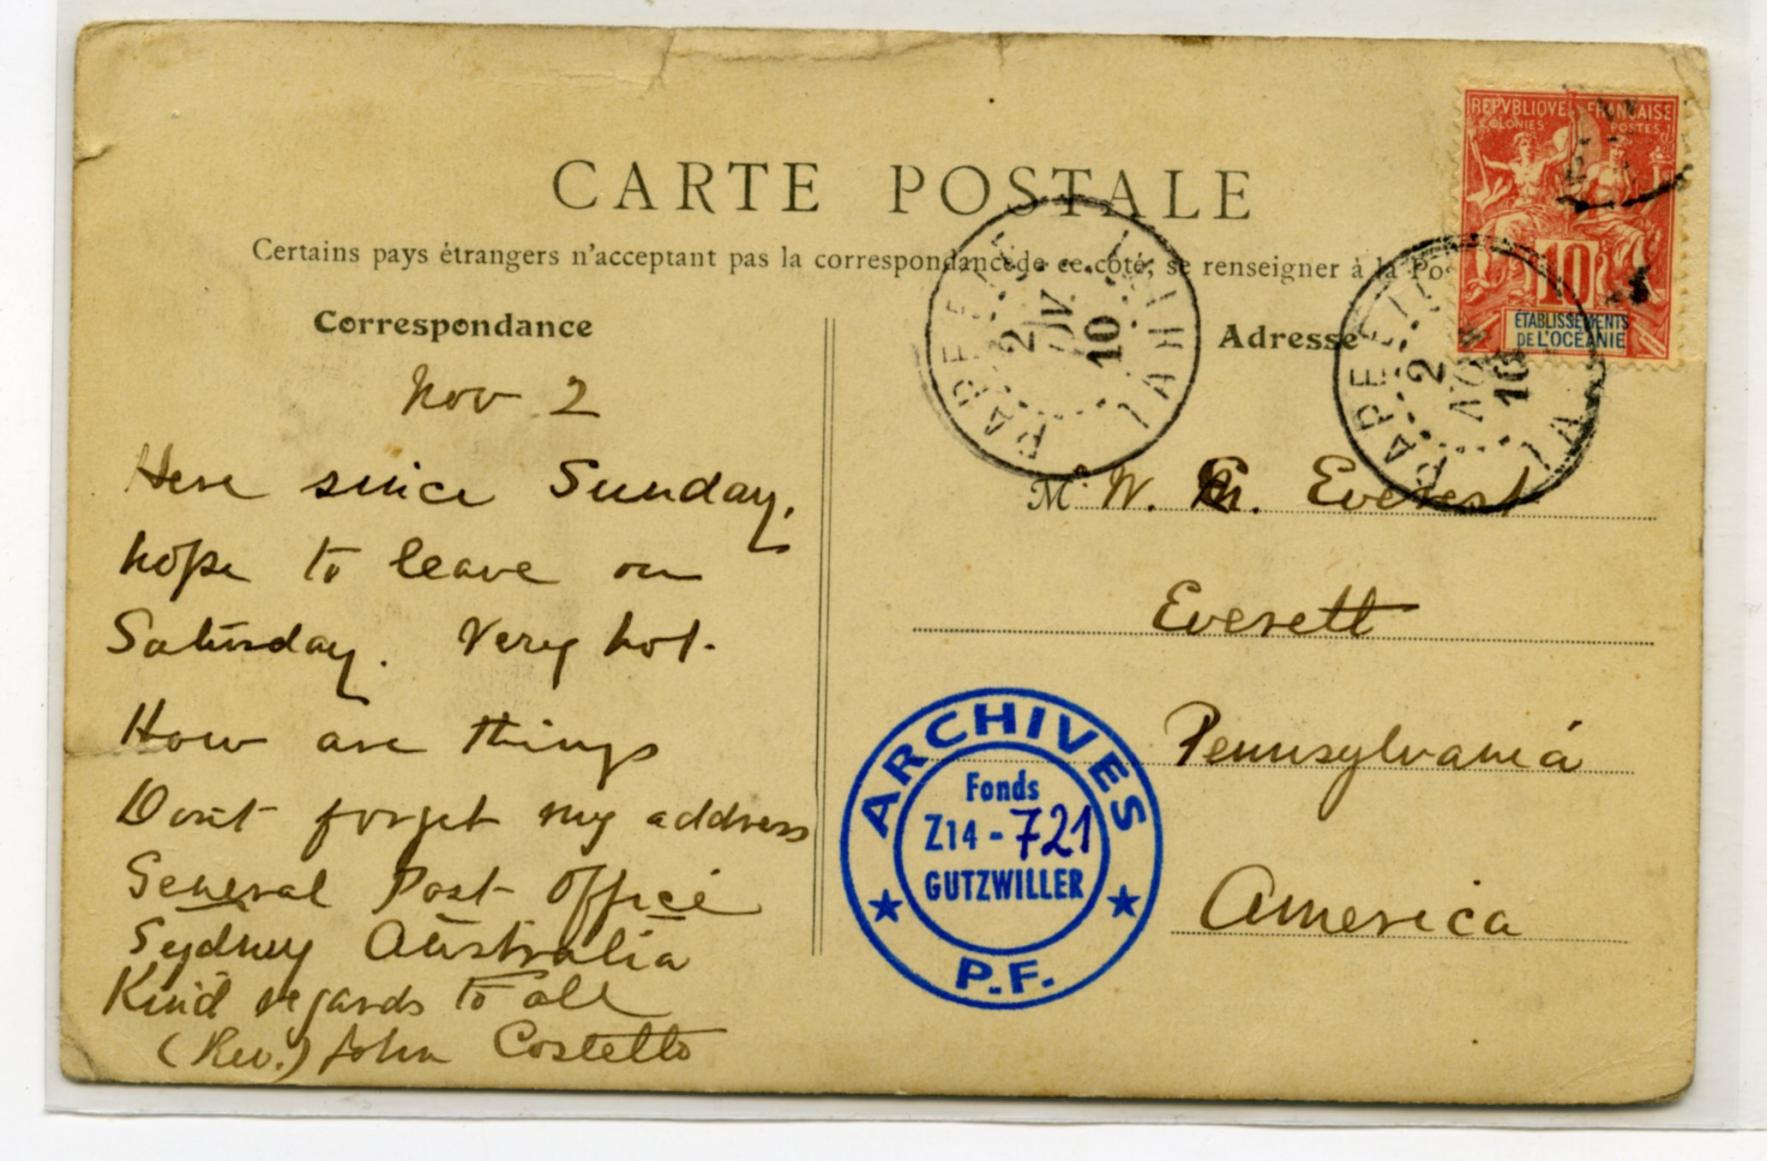 CARTE POSTALE
Certains pays étrangers n'acceptant pas la correspondance de ce côté, se renseigner à la Pos
Correspondance
Nov 2
Here since Sunday,
hope to leave on
Saturday. Very hot.
How are things
Don't forget my address
General Post Office
Sydney Australia
Kind regards to all
(Rev.) John Costello
Adresse
M. W. Everest
Everett
Pennsylvania
America
REPVBLIQVE FRANÇAISE
COLONIES POSTES
10
ÉTABLISSEMENTS
DE L'OCÉANIE
PAPEETE TAHITI
2
NOV.
10
PAPEETE TA
2
NOV
10
ARCHIVES
Fonds
Z14-721
GUTZWILLER
P.F.